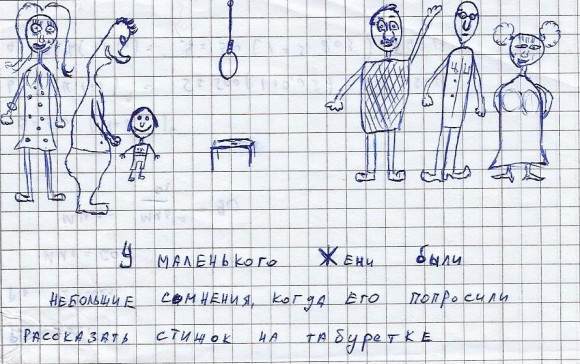 У МАЛЕНЬКОГО ЖЕНИ БЫЛИ
НЕБОЛЬШИЕ СОМНЕНИЯ, КОГДА ЕГО ПОПРОСИЛИ
РАССКАЗАТЬ СТИШОК НА ТАБУРЕТКЕ